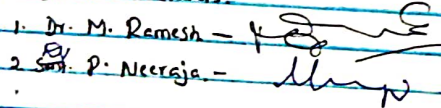 1. Dr. M. Ramesh –
2 Dr P. Neeraja. –